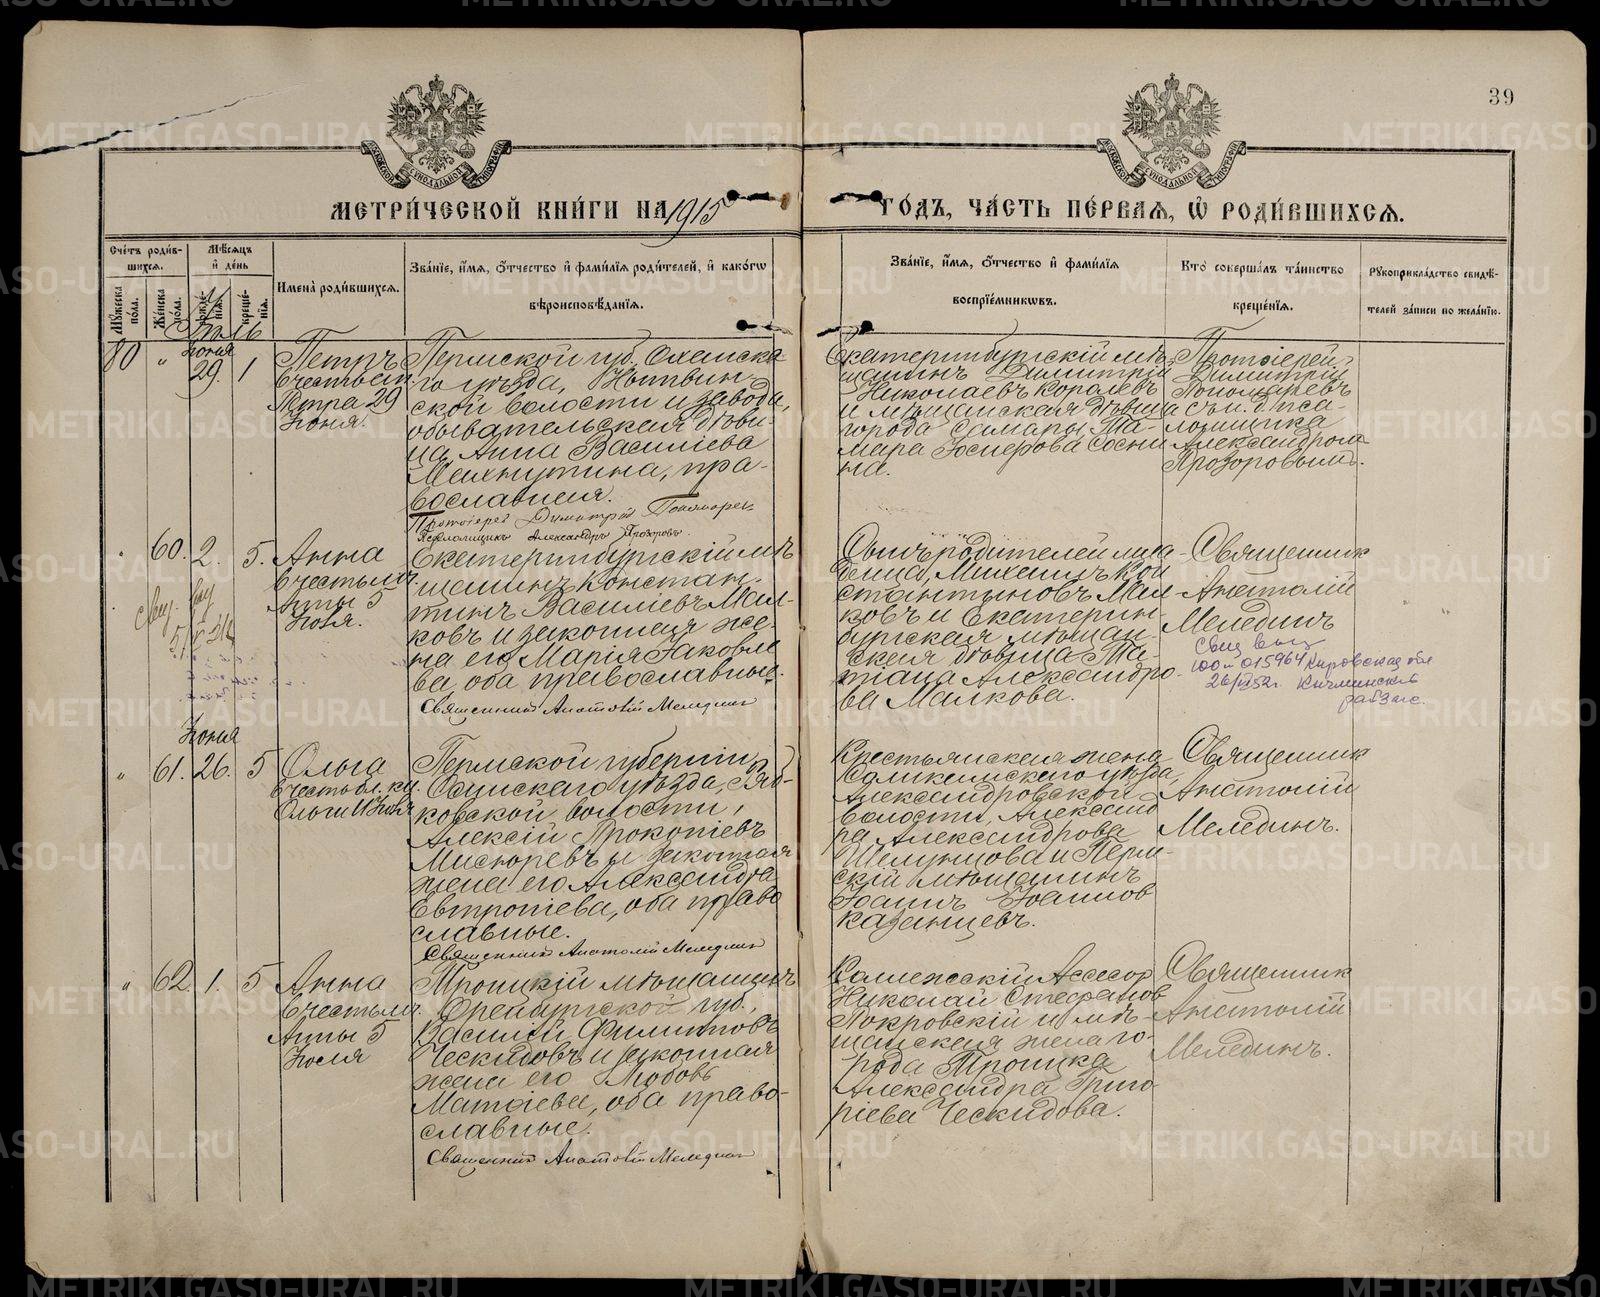 39
МЕТРИ́ЧЕСКОЙ КНИ́ГИ НА 1915
ГО́ДЪ, ЧА́СТЬ ПЕ́РВАѦ, Ѿ РОДИ́ВШИХСѦ.
Сче́тъ роди́в-
шихсѧ.
Мѹ́жеска по́ла.
Же́нска по́ла.
Мѣ́сѧцъ
и҆ де́нь
рожде́нїѧ.
креще́нїѧ.
Имена̀ роди́вшихсѧ.
Зва́нїе, и҆́мѧ, ѻ҆́тчество и҆ фами́лїѧ роди́телей, и҆ како́гѡ
вѣроисповѣ́данїѧ.
Зва́нїе, и҆́мѧ, ѻ҆́тчество и҆ фами́лїѧ
воспрїе́мникѡвъ.
Кто̀ соверша́лъ та́инство
креще́нїѧ.
Рꙋкоприкла́дство свидѣ́-
телей за́писи по жела́нїю.
80 " Іюня 29. 1
Петръ
въ честь ап.
Петра 29
Іюня.
Пермской губ. Оханска
го уѣзда, Нытвин-
ской волости и завода,
обывательская дѣви-
ца Анна Василіева
Мехнутина, пра-
вославная.
Протоіерей Димитрій Пономарев
Псаломщикъ Александръ Прозоровъ.
Екатеринбургскій мѣ-
щанинъ Димитрій
Николаевъ Королевъ
и мѣщанская дѣвица
города Самары Та-
мара Іосифова Сосни
на.
Протоіерей
Димитрій
Пономаревъ
съ и. д. пса-
ломщика
Александромъ
Прозоровымъ.
60. 2. 5.
Анна
въ честь мч.
Анны 5
Іюля.
Екатеринбургскій мѣ
щанинъ Констан-
тинъ Василіевъ Мал-
ковъ и законная же-
на его Марія Іаковле
ва, оба православные.
Священникъ Анатолій Мелединъ
Сынъ родителей мла
денца, Михаилъ Кон
стантиновъ Мал
ковъ и Екатерин-
бургская мѣщан-
ская дѣвица Та-
тіана Александро-
ва Малкова.
Священникъ
Анатолій
Мелединъ
Свид выд
ЮО № 015964 Кировская обл
26/ 52г. Кичминский
райзагс.
Іюня
" 61. 26. 5
Ольга
въ честь бл. кн.
Ольги 11 Іюля
Пермской губерніи,
Осинскаго уѣзда, Ряб-
ковской волости,
Алексій Прокопіевъ
Мисюревъ и законная
жена его Александра
Евтропіева, оба право
славные.
Священникъ Анатолій Мелединъ
Крестьянская жена
Соликамскаго уѣзда,
Александровской
волости, Александ
ра Александрова
Шелунцова и Перм-
скій мѣщанинъ
Іоаннъ Іоаннов
Казанцевъ.
Священникъ
Анатолій
Мелединъ.
" 62. 1. 5
Анна
въ честь мч.
Анны 5
Іюля
Троицкій мѣщанинъ
Оренбургской губ.,
Василій Филипповъ
Ческидовъ и законная
жена его Любовь
Матѳіева, оба право-
славные.
Священникъ Анатолій Мелединъ
Коллежскій Ассесор
Николай Стефанов
Покровскій и мѣ-
щанская жена го-
рода Троицка
Александра Григо
ріева Ческидова.
Священник
Анатолій
Мелединъ.
METRIKI.GASO-URAL.RU